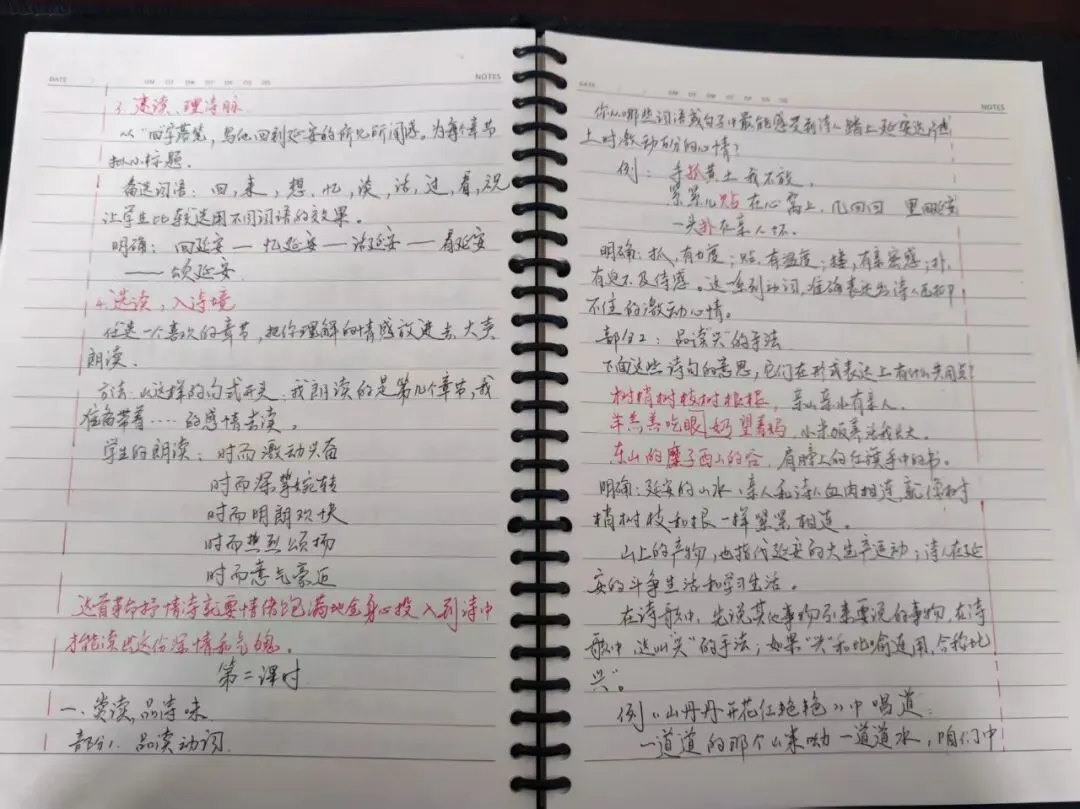 DATE
NOTES
3. 速读、理诗脉
以"回"字落笔，写他回到延安的所见所闻感。为每个章节
拟小标题.
备选词语：回，来，想，忆，谈，话，过，看，祝
让学生比较选用不同词语的效果。
明确：回延安—忆延安—话延安—看延安
——颂延安
4. 选读，入诗境
任选一个喜欢的章节，把你理解的情感放进去，大声
朗读.
方法：以这样的句式开头：我朗读的是第几个章节，我
准备带着……的感情去读。
学生的朗读：时而激动兴奋
时而深挚婉转
时而明朗欢快
时而热烈颂扬
时而意气豪迈
这首革命抒情诗就要情绪饱满地全身心投入到诗中
才能读出这份深情和气魄。
第二课时
一、赏读，品诗味
部分1. 品读动词
DATE
NOTES
你从哪些词语或句子中最能感受到诗人踏上延安这片土
上时激动百分的心情？
例：手抓黄土我不放，
紧紧儿贴在心窝上，几回回 里回延安
一头扑在亲人怀.
明确：抓，有力度；贴，有温度；搂，有亲密感；扑，
有迫不及待感。这一系列动词，准确表达出诗人
不住的激动心情。
部分2：品读"兴"的手法
下面这些诗句的意思，它们在形式表达上有什么共同点？
树梢树枝树根根，亲山亲水有亲人.
羊羔羔吃奶眼望着妈，小米饭养活我长大.
东山的糜子西山的谷，肩膀上的红旗手中的书.
明确：延安的山水、亲人和诗人血肉相连，就像树
梢树枝和根一样紧紧相连。
山上的产物，也指代延安的大生产运动；诗人在延
安的斗争生活和学习生活。
在诗歌中，先说其他事物引来要说的事物，在诗
歌中，这叫"兴"的手法；如果"兴"和比喻连用，合称比
兴"。
例《山丹丹开花红艳艳》中唱道：
一道道的那个山来呦一道道水，咱们中